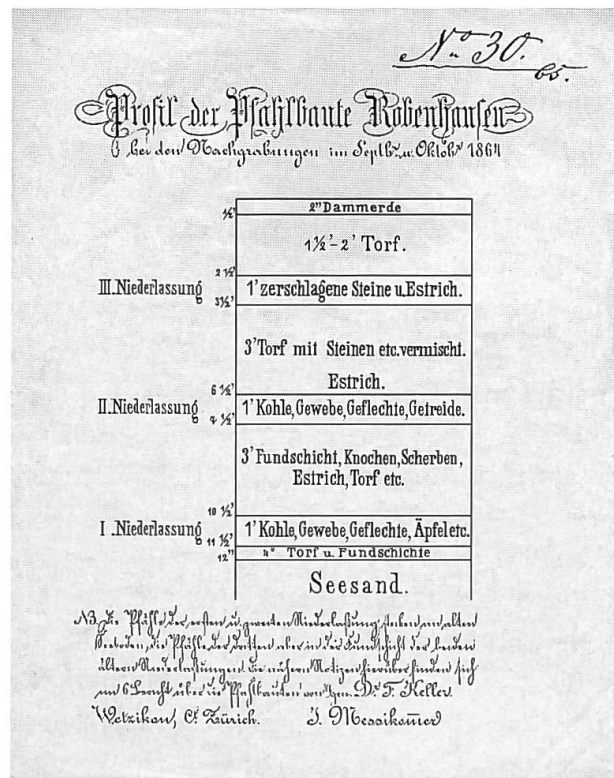 No 30.
65.
Profil der Pfahlbaute Robenhausen
bei den Nachgrabungen im Septbr. u. Oktobr 1864
2" Dammerde
½'
1½'-2' Torf.
2½'
III. Niederlassung 1' zerschlagene Steine u. Estrich.
3½'
3' Torf mit Steinen etc. vermischt.
Estrich.
6½'
II. Niederlassung 1' Kohle, Gewebe, Geflechte, Getreide.
7½'
3' Fundschicht, Knochen, Scherben,
Estrich, Torf etc.
10½'
I. Niederlassung 1' Kohle, Gewebe, Geflechte, Äpfel etc.
11½'
4" Torf u. Fundschichte
12"
Seesand.
NB. Die Pfähle der ersten u. zweiten Niederlaßung stehen im alten
Seeboden, die Pfähle der dritten aber in der Fundschicht der beiden
ältern Niederlaßungen. Die nähern Notizen hierüber finden sich
im 6 Bericht über die Pfahlbauten von Hrn. Dr. F. Keller.
Wetzikon, Ct. Zürich. J. Messikomer